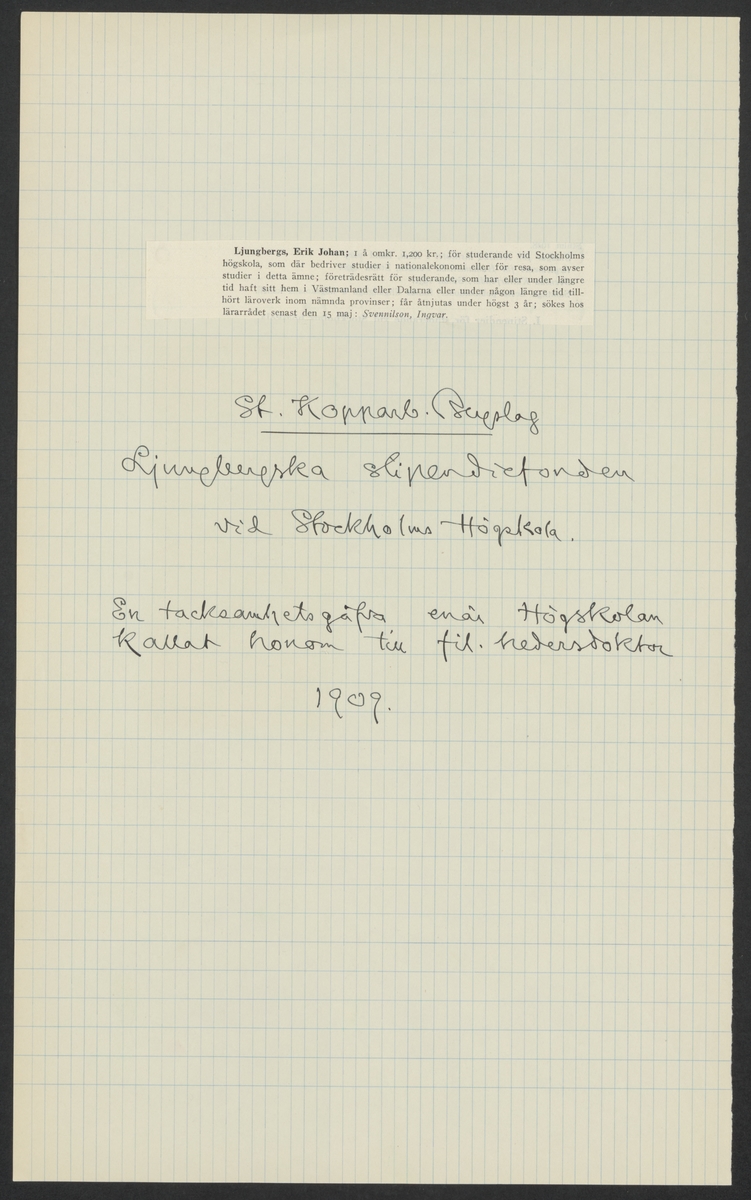 Ljungbergs, Erik Johan; 1 å omkr. 1,200 kr.; för studerande vid Stockholms
högskola, som där bedriver studier i nationalekonomi eller för resa, som avser
studier i detta ämne; företrädesrätt för studerande, som har eller under längre
tid haft sitt hem i Västmanland eller Dalarna eller under någon längre tid till-
hört läroverk inom nämnda provinser; får åtnjutas under högst 3 år; sökes hos
lärarrådet senast den 15 maj: Svennilson, Ingvar.
St. Kopparb. Bergslag
Ljungbergska stipendiefonden
vid Stockholms Högskola.
En tacksamhetsgåfva, enär Högskolan
kallat honom till fil. hedersdoktor
1909.